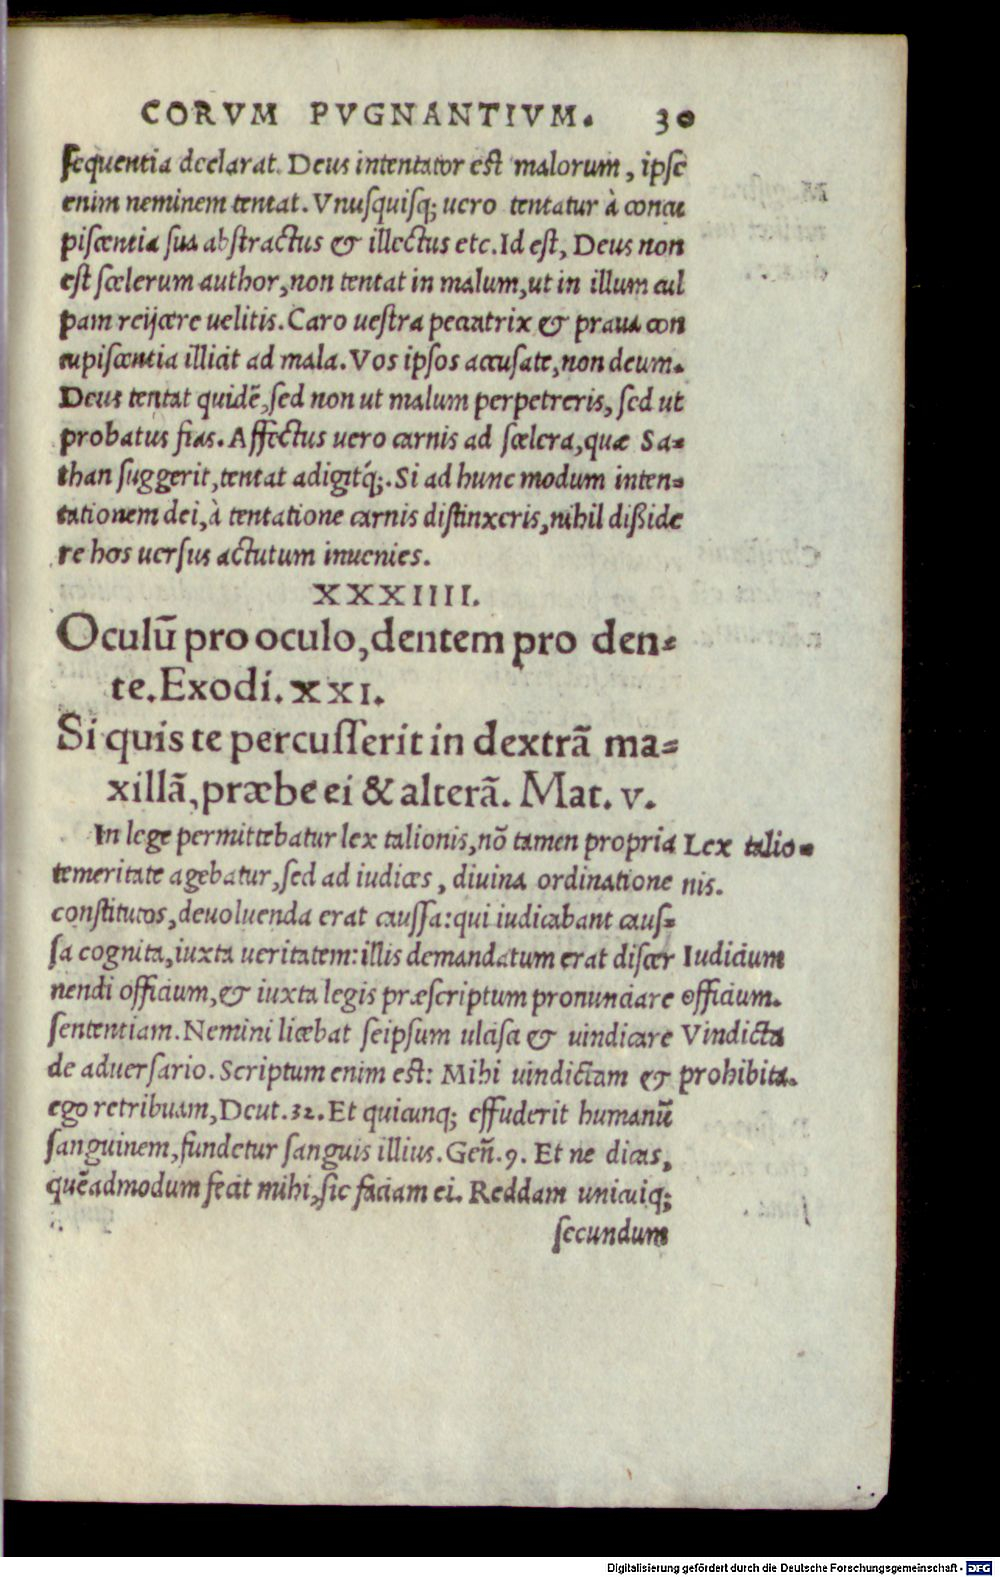 CORVM PVGNANTIVM. 30
sequentia declarat. Deus intentator est malorum, ipse
enim neminem tentat. Vnusquisq; uero tentatur à concu
piscentia sua abstractus & illectus etc. Id est, Deus non
est scelerum author, non tentat in malum, ut in illum cul
pam reijcere uelitis. Caro uestra peccatrix & praua con
cupiscentia illicit ad mala. Vos ipsos accusate, non deum.
Deus tentat quidē, sed non ut malum perpetreris, sed ut
probatus fias. Affectus uero carnis ad scelera, quæ Sa=
than suggerit, tentat adigitq́;. Si ad hunc modum inten=
tationem dei, à tentatione carnis distinxeris, nihil dißide
re hos uersus actutum inuenies.
XXXIIII.
Oculū pro oculo, dentem pro den=
te. Exodi. XXI.
Si quis te percusserit in dextrā ma=
xillā, præbe ei & alterā. Mat. v.
In lege permittebatur lex talionis, nō tamen propria
Lex talio=
nis.
temeritate agebatur, sed ad iudices, diuina ordinatione
constitutos, deuoluenda erat caussa: qui iudicabant caus=
sa cognita, iuxta ueritatem: illis demandatum erat discer
Iudicium
officium.
nendi officium, & iuxta legis præscriptum pronunciare
sententiam. Nemini licebat seipsum ulcisci & uindicare
Vindicta
prohibita.
de aduersario. Scriptum enim est: Mihi uindictam &
ego retribuam, Deut. 32. Et quicunq; effuderit humanū
sanguinem, fundetur sanguis illius. Geñ. 9. Et ne dicas,
quēadmodum fecit mihi, sic faciam ei. Reddam unicuiq;
secundum
Digitalisierung gefördert durch die Deutsche Forschungsgemeinschaft - DFG